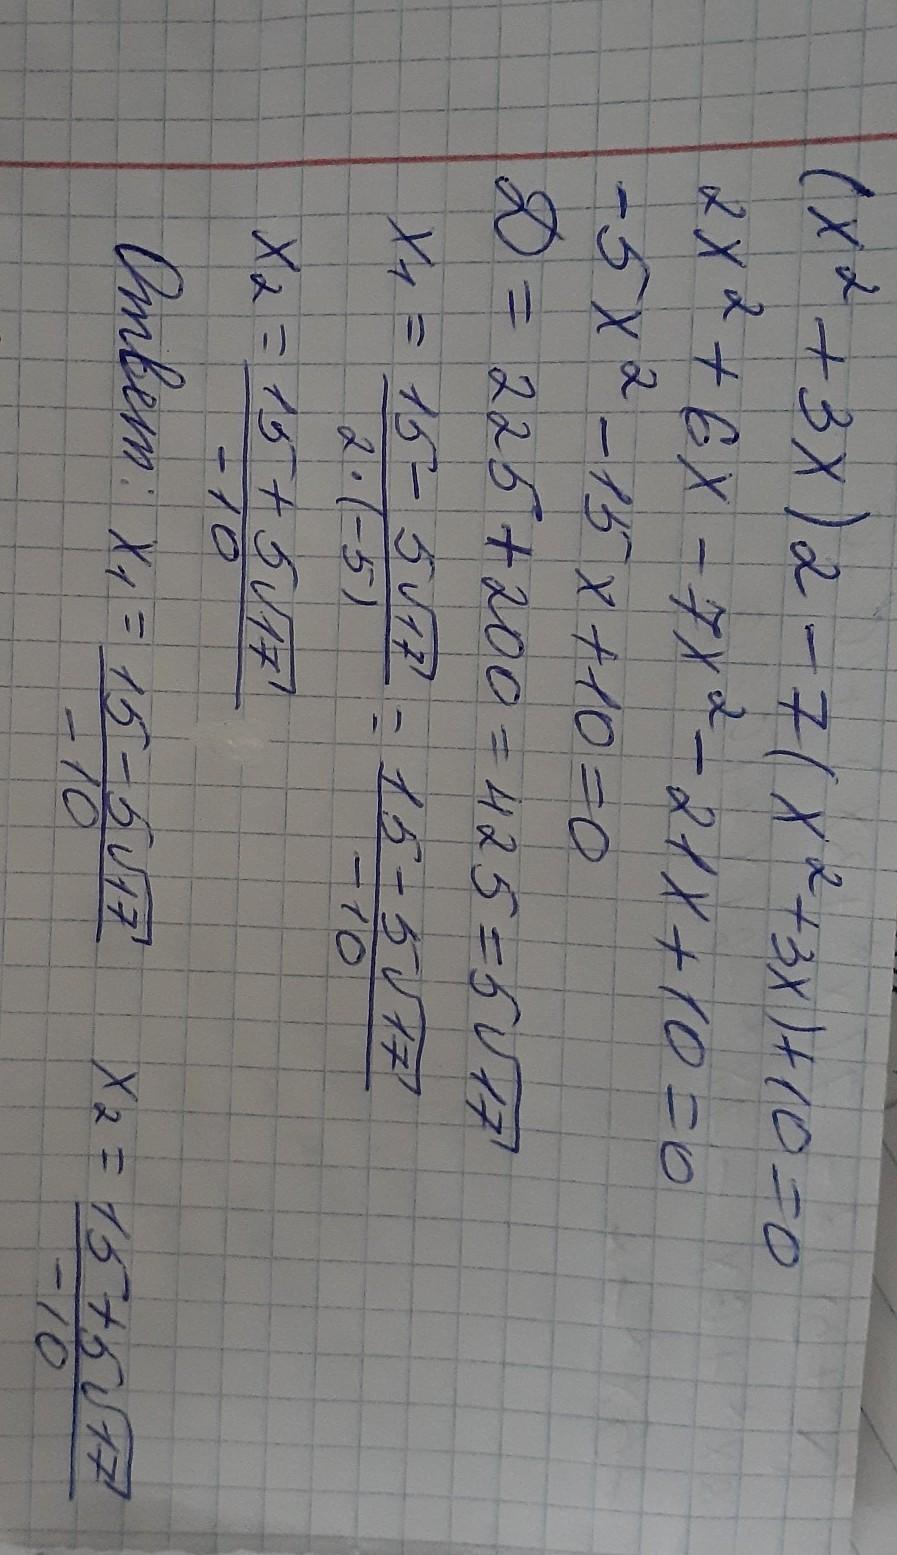 (x² + 3x)2 - 7(x² + 3x) + 10 = 0
2x² + 6x - 7x² - 21x + 10 = 0
-5x² - 15x + 10 = 0
D = 225 + 200 = 425 = 5√17
x₁ = (15 - 5√17)/(2·(-5)) = (15 - 5√17)/(-10)
x₂ = (15 + 5√17)/(-10)
Ответ: x₁ = (15 - 5√17)/(-10) x₂ = (15 + 5√17)/(-10)